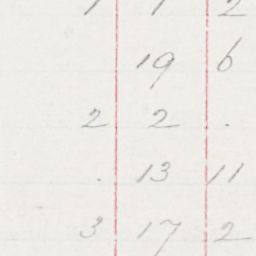 1 1 2
19 6
2 2 .
. 13 11
3 17 2